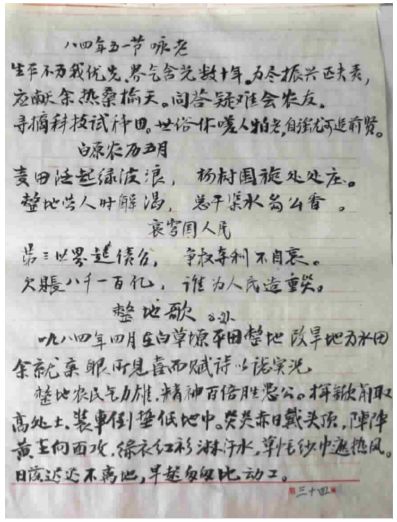 八四年五一节咏老
生平不为我优先,忍气含羞数十年。为尽振兴匹夫责,
应献余热桑榆天。问答疑难会农友,
寻摘科技试种田。世俗休嗟人怕老,自强尤可追前贤。
白原农历五月
麦田泛起绿波浪, 杨树围旋处处庄。
整地劳人时解渴, 总干渠水备么香。
哀穷国人民
第三世界起债台, 争权夺利不自哀。
欠账八千一百亿, 谁为人民造重灾。
整地歌
一九八四年四月在白草塬平田整地改旱地为水田
余就亲眼所见喜而赋诗以志实况
整地农民气力雄,精神百倍胜愚公。挥锨削取
高处土,装车倒垫低地中。炎炎赤日戴头顶,阵阵
黄尘向西攻,绿衣红衫淋汗水,草帽纱巾遮热风。
日落迟迟不离地,早起匆匆比动工。
三十四